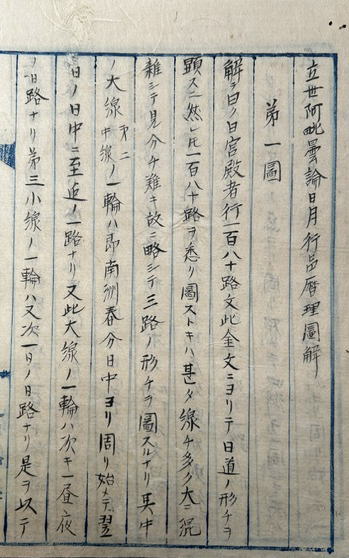 立世阿毗曇論日月行品暦理圖解
第一圖
解ヲ曰ク日宮殿者行一百八十路文此金文ニヨリテ日道ノ形チヲ
顕ス然レ𪜈一百八十路ヲ悉ク圖ストキハ甚タ線チ多ク大ニ混
雜シテ見分チ難キ故ニ略シテ三路ノ形チヲ圖スルナリ其中
ノ大線 第二中線ノ一輪ハ即南洲春分日中ヨリ周リ始メテ翌
日ノ日中ニ至迄ノ一路ナリ又此大線ノ一輪ハ次キ一昼夜
ノ日路ナリ第三小線ノ一輪ハ又次一日ノ日路ナリ是ヲ以テ